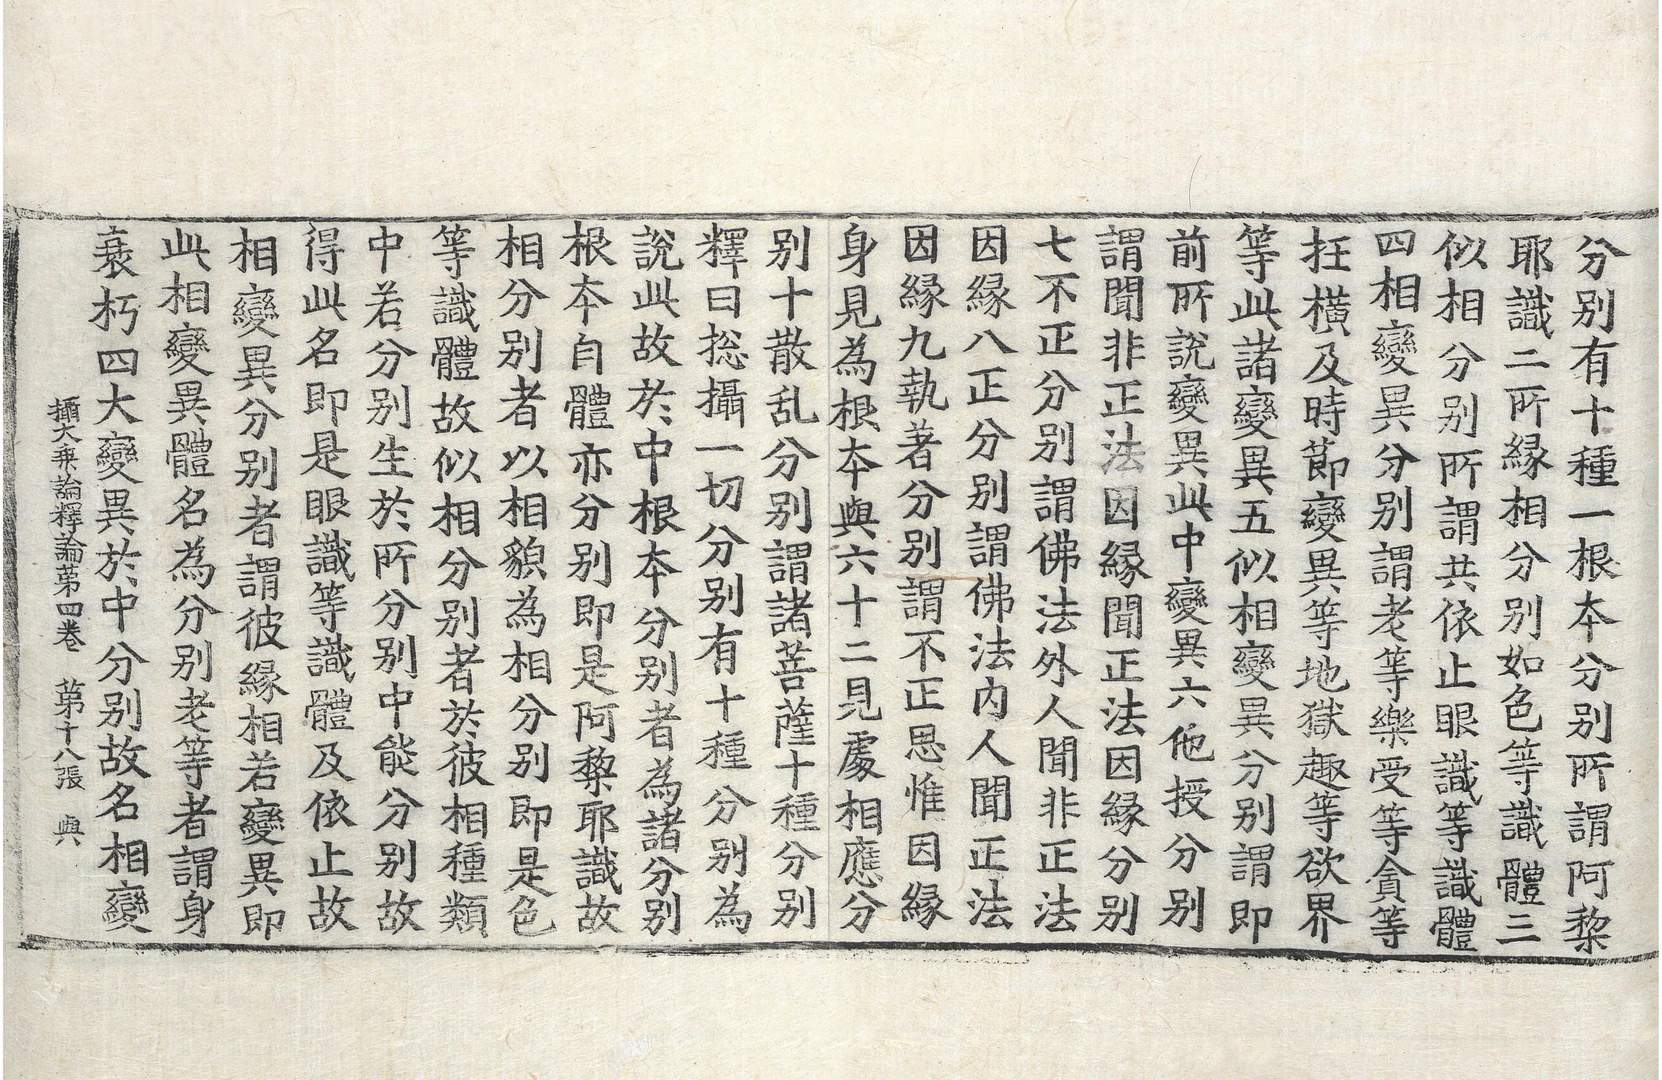 分别有十種一根本分别所謂阿黎
耶識二所縁相分别如色等識體三
似相分别所謂共依止眼識等識體
四相變異分别謂老等樂受等貪等
抂橫及時節變異等地獄趣等欲界
等此諸變異五似相變異分别謂即
前所說變異此中變異六他授分别
謂聞非正法因縁聞正法因縁分别
七不正分别謂佛法外人聞非正法
因縁八正分别謂佛法内人聞正法
因縁九執著分别謂不正思惟因縁
身見為根本與六十二見處相應分
别十散乱分别謂諸菩薩十種分别
釋曰揔攝一切分别有十種分别為
說此故於中根本分别者為諸分别
根本自體亦分别即是阿黎耶識故
相分别者以相貌為相分别即是色
等識體故似相分别者於彼相種類
中若分别生於所分别中能分别故
得此名即是眼識等識體及依止故
相變異分别者謂彼縁相若變異即
此相變異體名為分别老等者謂身
衰朽四大變異於中分别故名相變
攝大乗論釋論苐四卷 苐十八張 與